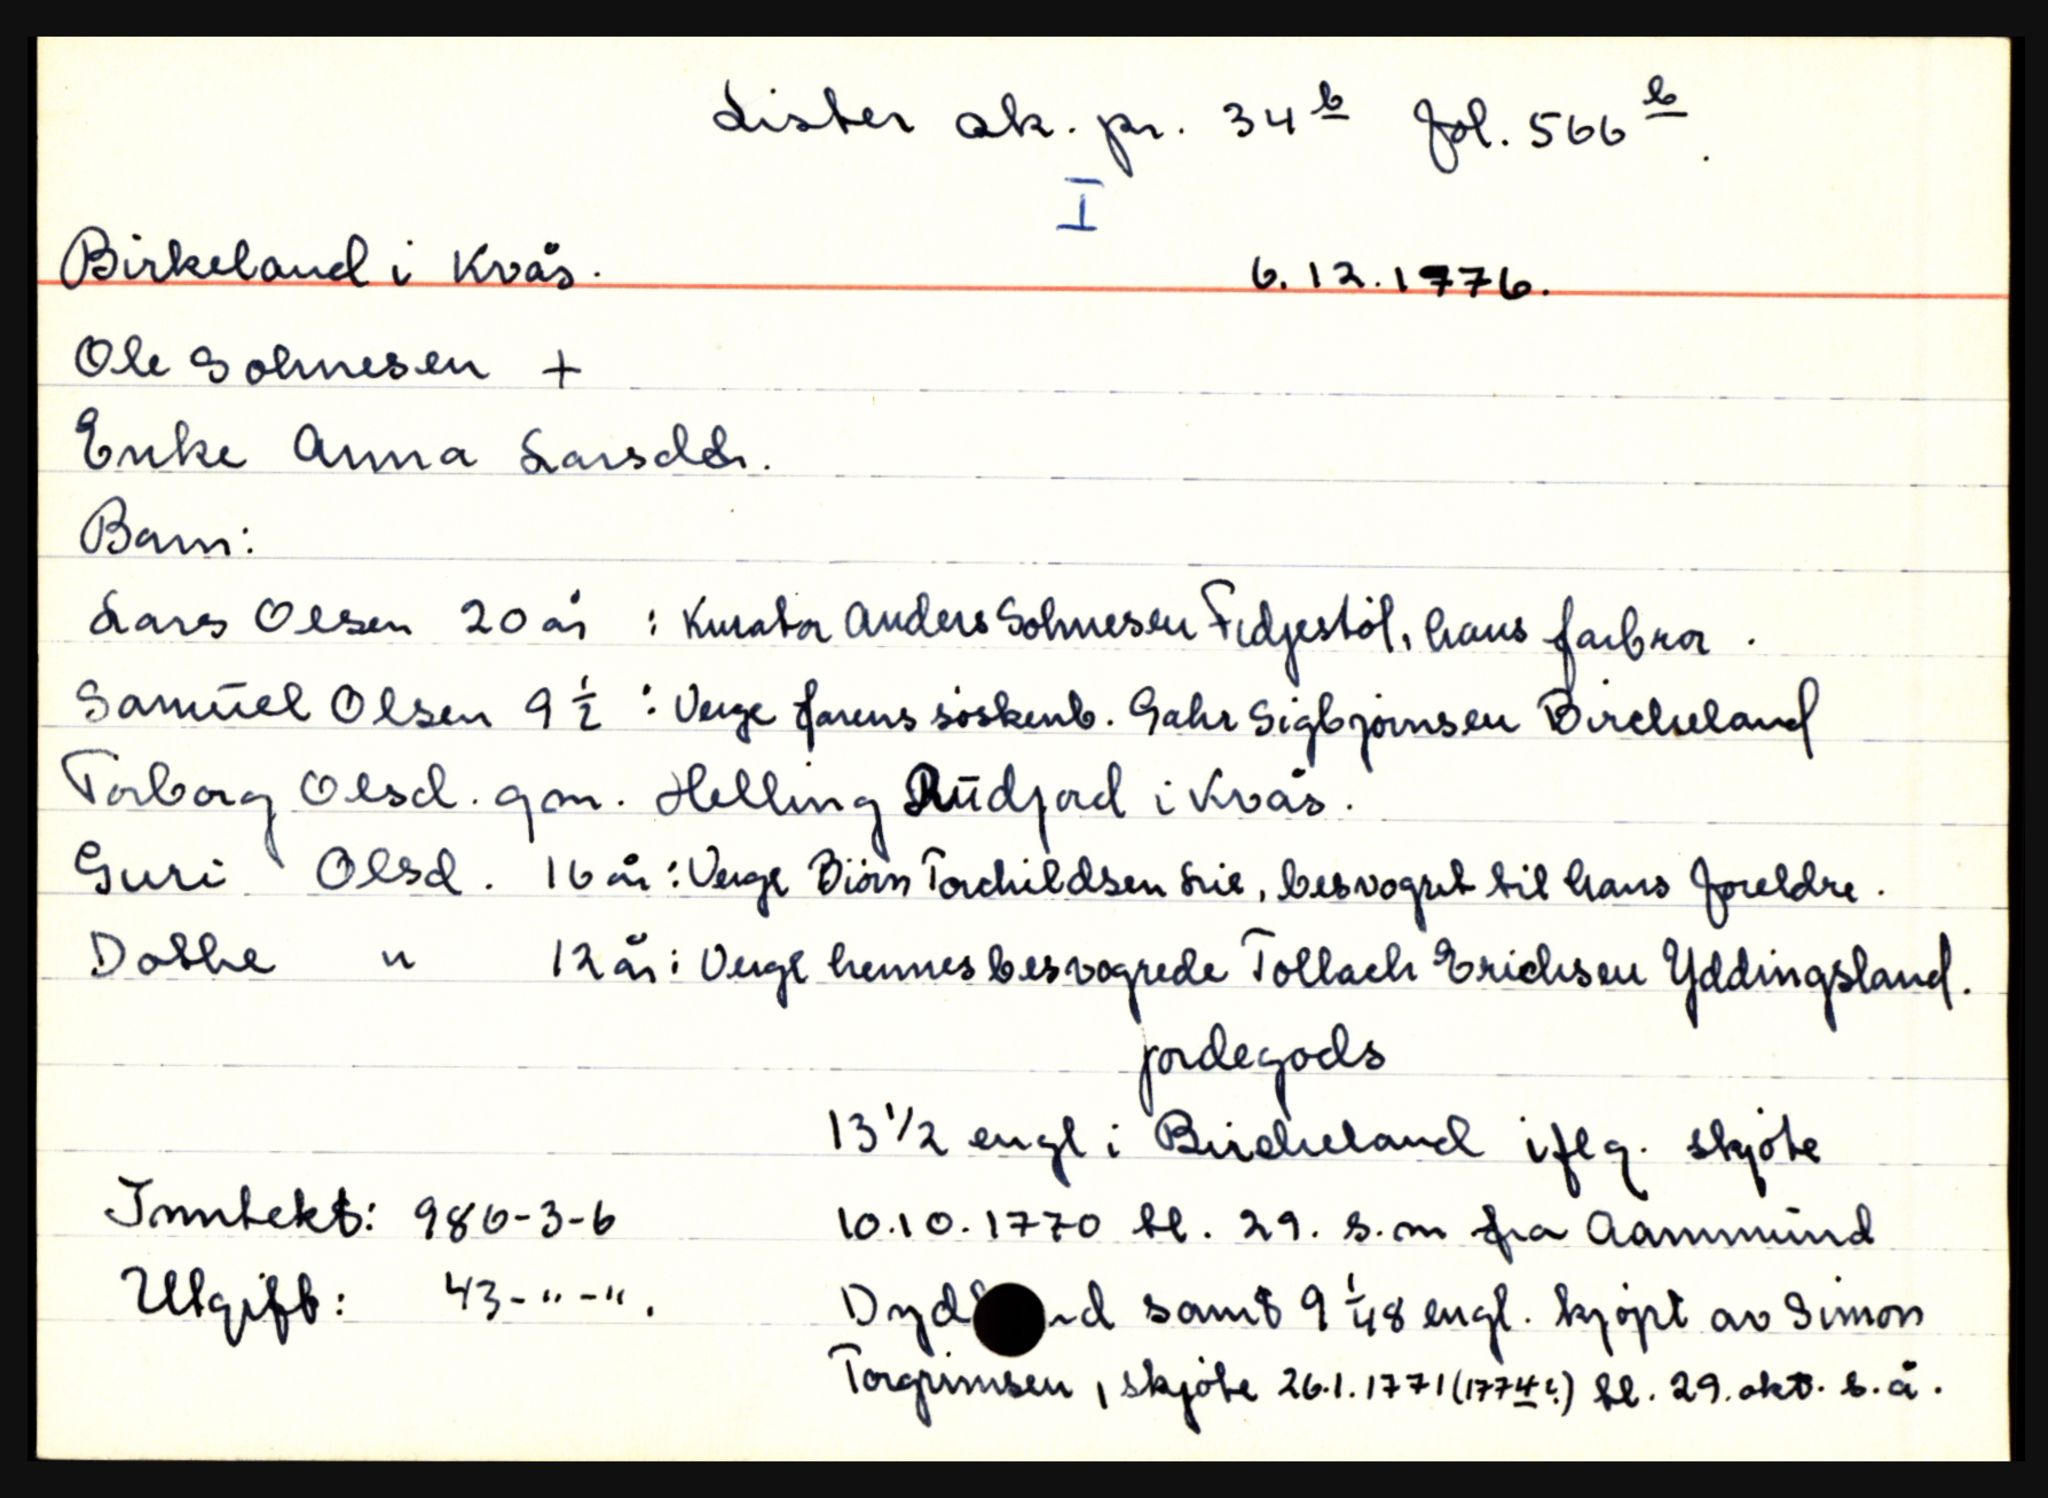 Lister sk. pr. 34 b fol. 566 b.
I
Birkeland i Kvås. 6.12.1776.
Ole Solmesen +
Enke Anna Larsdtr.
Barn:
Lars Olsen 20 år : Kurator Anders Solmesen Fidjestöl, hans farbror.
Samüel Olsen 9 1/2 : Verge farens söskenb. Gahr Sigbjörnsen Bircheland
Torborg Olsd. gm. Helling Rüdjord i Kvås.
Guri Olsd. 16 år : Verge Biörn Torchildsen Lie, besvogret til hans foreldre.
Dothe " 12 år : Verge hennes besvogrede Tollach Erichsen Yddingsland.
jordegods
13 1/2 engl i Bircheland iflg. skjöte
Inntekt: 986-3-6 10.10.1770 tl. 29. s.m fra Aanmünd
Utgift: 43-"-". Dyd nd samt 9 1/48 engl. kjöpt av Simon
Torgrimsen, skjöte 26.1.1771 (1774?) tl. 29. okt. s.å.